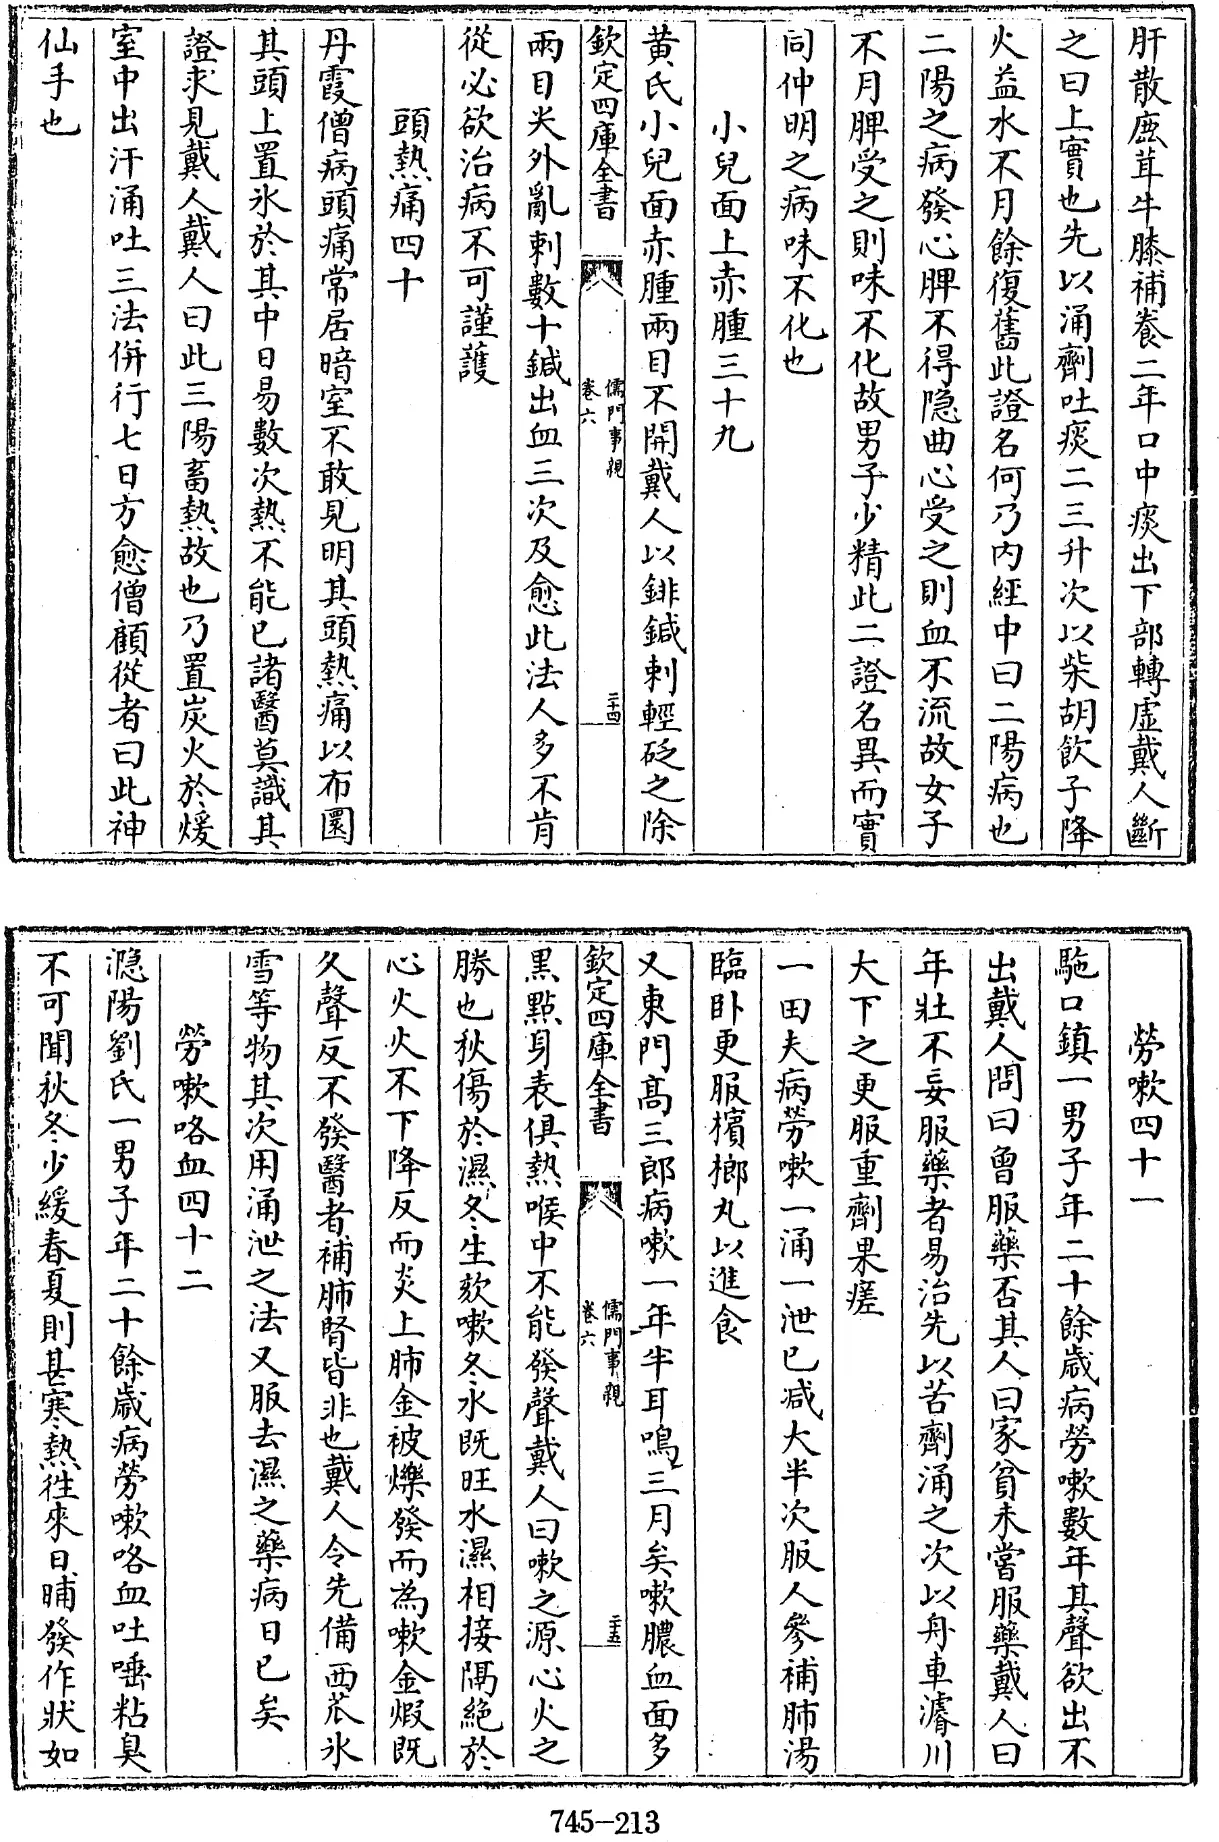 肝散鹿茸牛膝補養二年口中痰出下部轉虛戴人斷
之曰上實也先以涌劑吐痰二三升次以柴胡飲子降
火益水不月餘復舊此證名何乃內經中曰二陽病也
二陽之病發心脾不得隱曲心受之則血不流故女子
不月脾受之則味不化故男子少精此二證名異而實
同仲明之病味不化也
小兒面上赤腫三十九
黃氏小兒面赤腫兩目不開戴人以鈹鍼刺輕砭之除
欽定四庫全書
儒門事親
卷六
二十四
兩目尖外亂刺數十鍼出血三次及愈此法人多不肯
從必欲治病不可謹護
頭熱痛四十
丹霞僧病頭痛常居暗室不敢見明其頭熱痛以布圜
其頭上置氷於其中日易數次熱不能已諸醫莫識其
證求見戴人戴人曰此三陽畜熱故也乃置炭火於煖
室中出汗涌吐三法併行七日方愈僧顧從者曰此神
仙手也
勞嗽四十一
駞口鎮一男子年二十餘歳病勞嗽數年其聲欲出不
出戴人問曰曾服藥否其人曰家貧未嘗服藥戴人曰
年壯不妄服藥者易治先以苦劑涌之次以舟車濬川
大下之更服重劑果瘥
一田夫病勞嗽一涌一泄已減大半次服人參補肺湯
臨卧更服檳榔丸以進食
又東門髙三郎病嗽一年半耳鳴三月矣嗽膿血面多
欽定四庫全書
儒門事親
卷六
二十五
黒點身表俱熱喉中不能發聲戴人曰嗽之源心火之
勝也秋傷於濕冬生欬嗽冬水既旺水濕相接隔絶於
心火火不下降反而炎上肺金被爍發而為嗽金煅既
久聲反不發醫者補肺腎皆非也戴人令先備西瓜氷
雪等物其次用涌泄之法又服去濕之藥病日已矣
勞嗽咯血四十二
㶏陽劉氏一男子年二十餘歲病勞嗽咯血吐唾粘臭
不可聞秋冬少緩春夏則甚寒熱往來日晡發作狀如
745-213